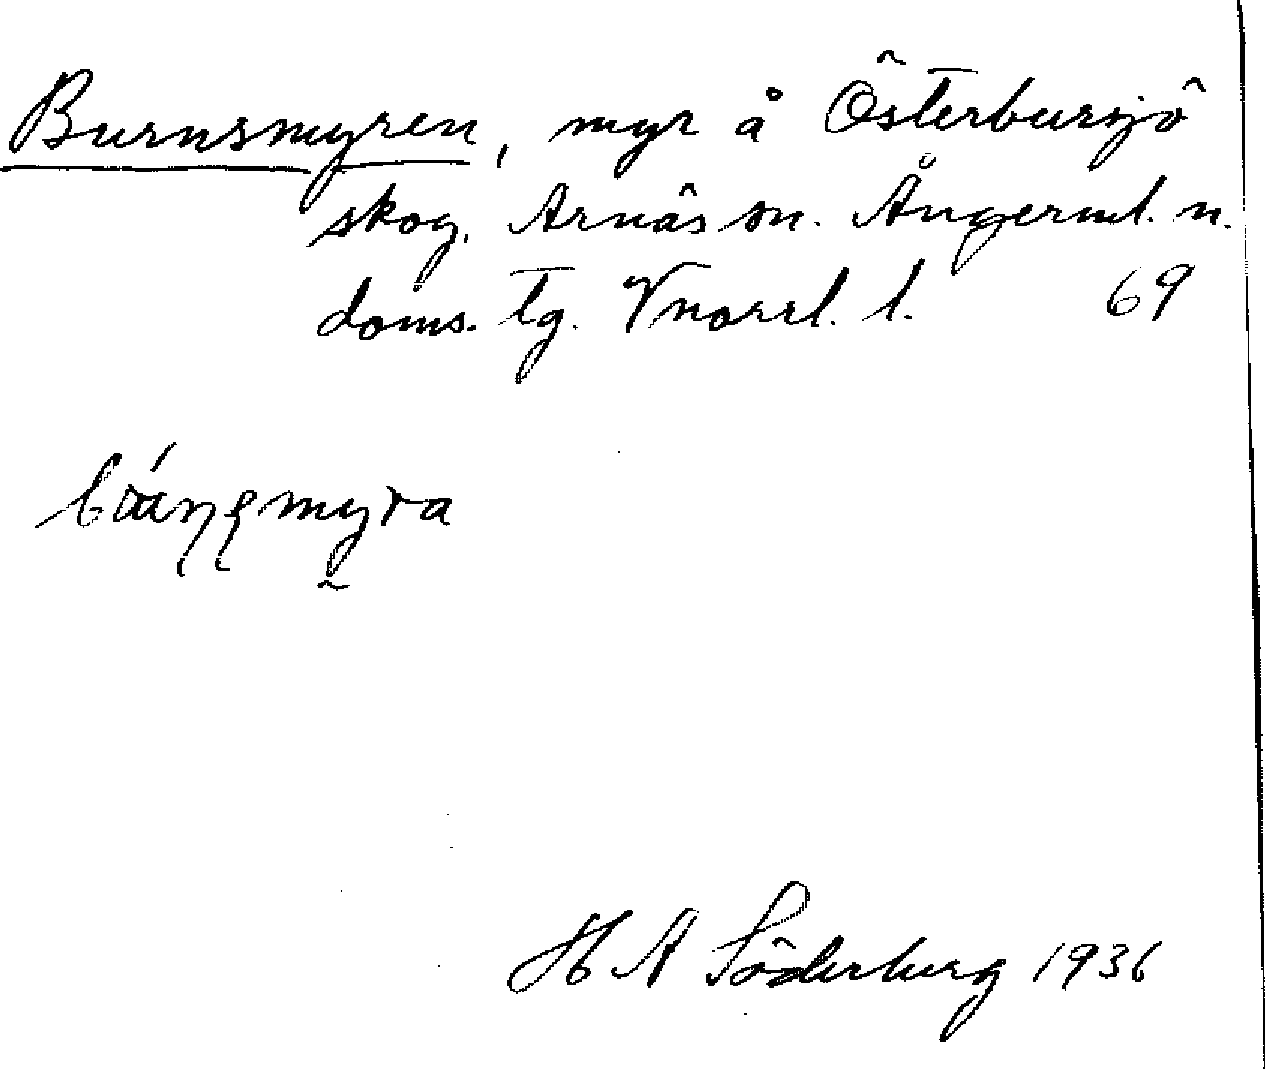 Burnsmyren, myr å Österbursjö
skog, Arnäs sn. Ångerml. n.
doms. tg. Vnorrl. l. 69
H A Söderberg 1936